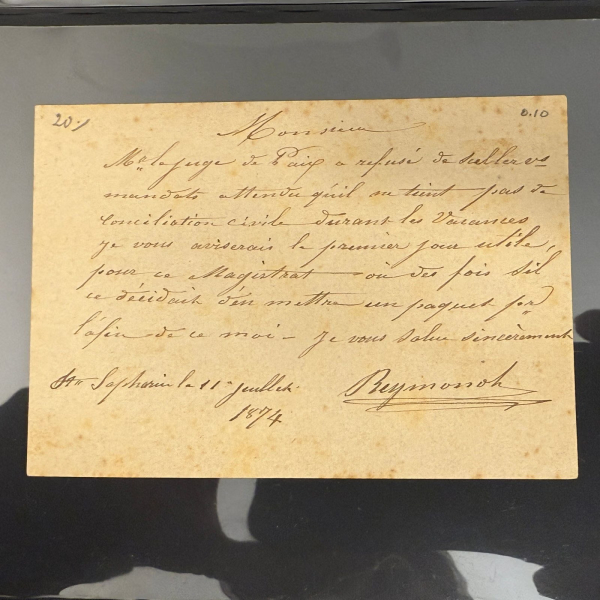 20./ 0.10
Monsieur
Mr. le juge de Paix a refusé de sceller vs
mandats attendu qu'il ne tient pas de
conciliation civile durant les Vacances
je vous aviserais le premier jour utile,
pour ce Magistrat – où des fois s'il
ce décidait d'en mettre un paquet pr
lafin de ce moi – Je vous salue sincèrement
St Saphorin le 11 juillet.
1874
Reymond